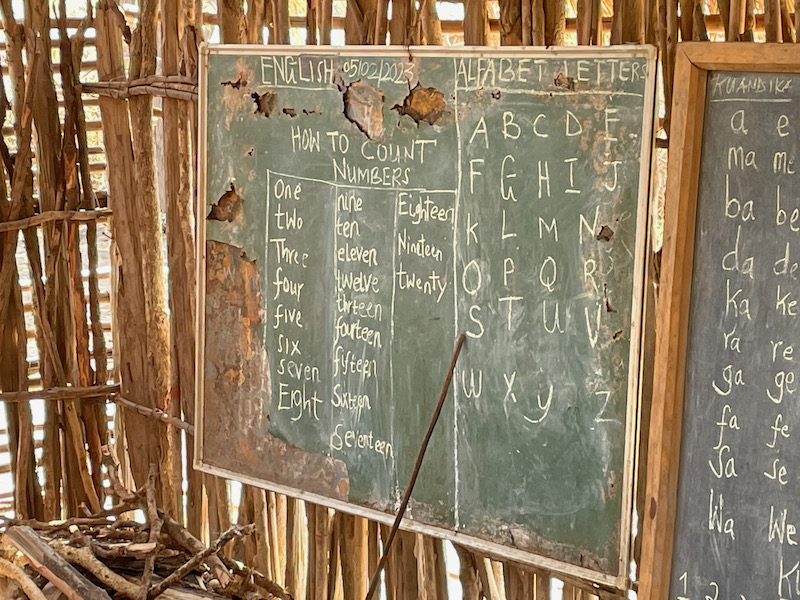 ENGLISH 05/02/2023
HOW TO COUNT
NUMBERS
one
two
Three
four
five
six
seven
Eight
nine
ten
eleven
twelve
thrteen
fourteen
fifteen
Sixteen
Seventeen
Eighteen
Nineteen
twenty
ALFABET LETTERS
A B C D E
F G H I J
K L M N
O P Q R
S T U V
W X y Z
KUANDIKA
a e
ma me
ba be
da de
Ka Ke
ra re
ga ge
fa fe
Sa se
Wa We
1 2